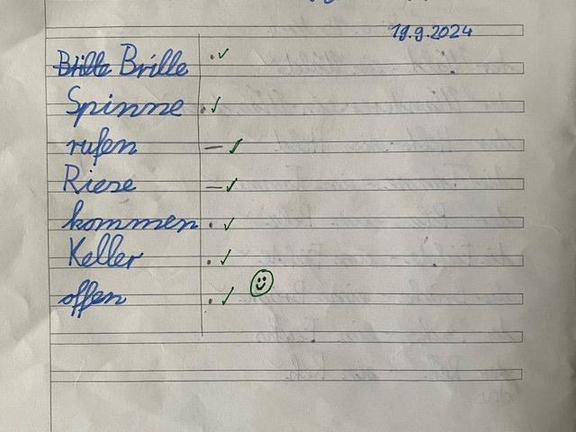 19.9.2024
Brille Brille . ✓
Spinne . ✓
rufen – ✓
Riese – ✓
kommen . ✓
Keller . ✓
offen . ✓